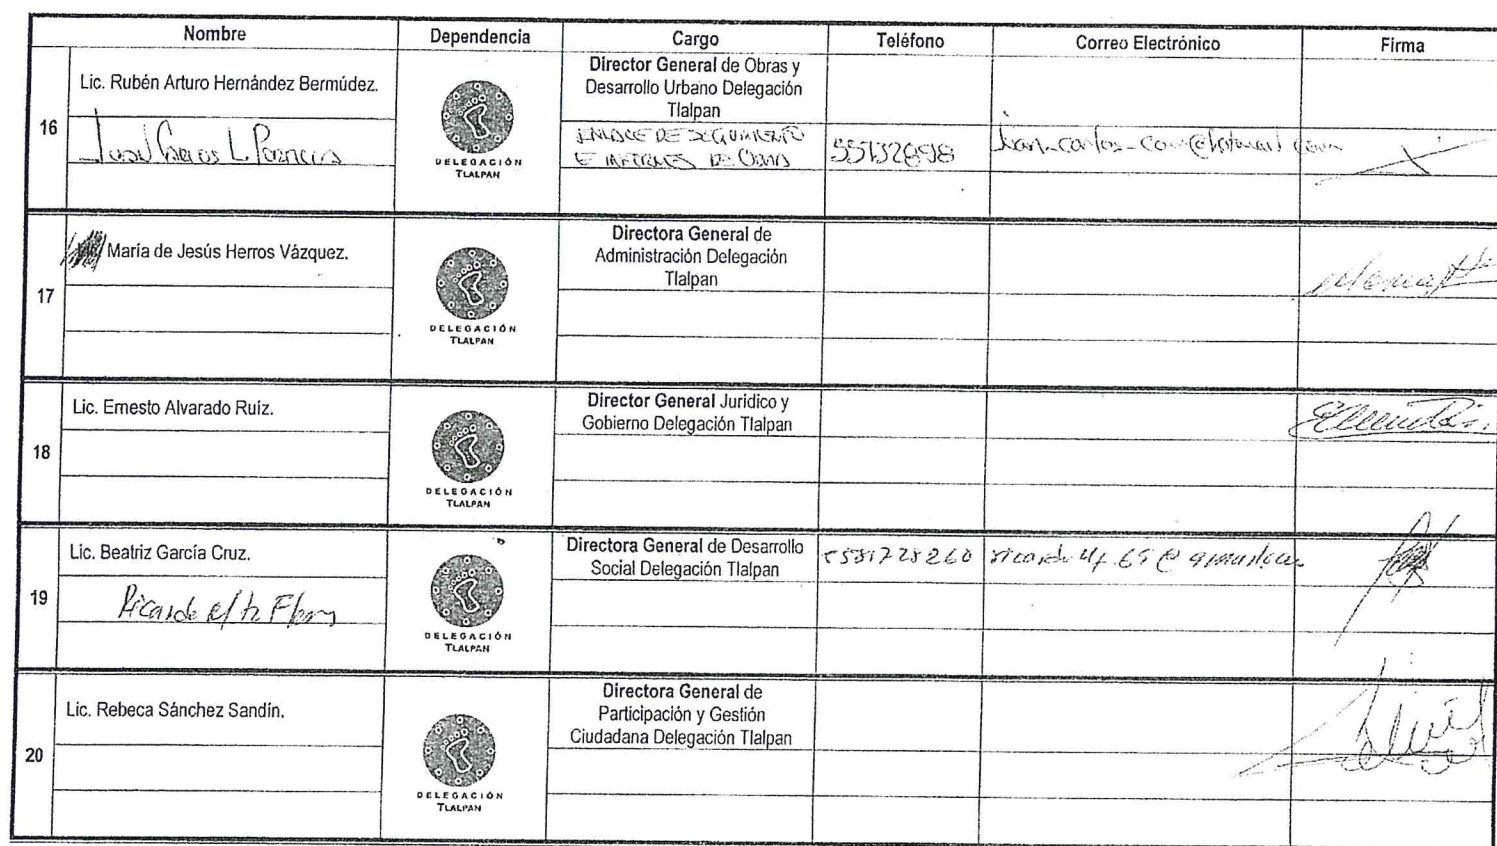 Nombre Dependencia Cargo Teléfono Correo Electrónico Firma
16
Lic. Rubén Arturo Hernández Bermúdez.
DELEGACIÓN
TLALPAN
Director General de Obras y
Desarrollo Urbano Delegación
Tlalpan
ENLACE DE SEGUIMIENTO
E INFORMES DE OBRA
55732898
17
María de Jesús Herros Vázquez.
DELEGACIÓN
TLALPAN
Directora General de
Administración Delegación
Tlalpan
18
Lic. Ernesto Alvarado Ruíz.
DELEGACIÓN
TLALPAN
Director General Jurídico y
Gobierno Delegación Tlalpan
19
Lic. Beatriz García Cruz.
Ricardo
DELEGACIÓN
TLALPAN
Directora General de Desarrollo
Social Delegación Tlalpan
5581728260
20
Lic. Rebeca Sánchez Sandín.
DELEGACIÓN
TLALPAN
Directora General de
Participación y Gestión
Ciudadana Delegación Tlalpan